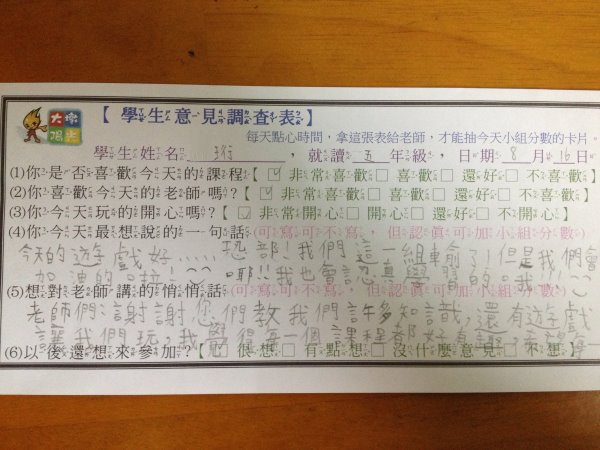 大家陽光
【學生意見調查表】
每天點心時間,拿這張表給老師,才能抽今天小組分數的卡片。
學生姓名 ,就讀 五 年級,日期 8 月 16 日
(1)你是否喜歡今天的課程【☑非常喜歡□ 喜歡□ 還好□ 不喜歡】
(2)你喜歡今天的老師嗎?【☑非常喜歡□ 喜歡□ 還好□ 不喜歡】
(3)你今天玩的開心嗎?【☑非常開心□ 開心□ 還好□ 不開心】
(4)你今天最想說的一句話(可寫可不寫,但認真可加小組分數)
今天的遊戲好.....恐部!我們這一組輸了!但是我們會
加油的啦!~~耶!!我也會認真學習的。哦!!~~
(5)想對老師講的悄悄話(可寫可不寫,但認真可加小組分數)
老師們:謝謝您們教我們許多知識,還有遊戲
讓我們玩,我覺得每一個課程都好
(6)以後還想來參加?【☑很想□ 有點想□ 沒什麼意見□ 不想】